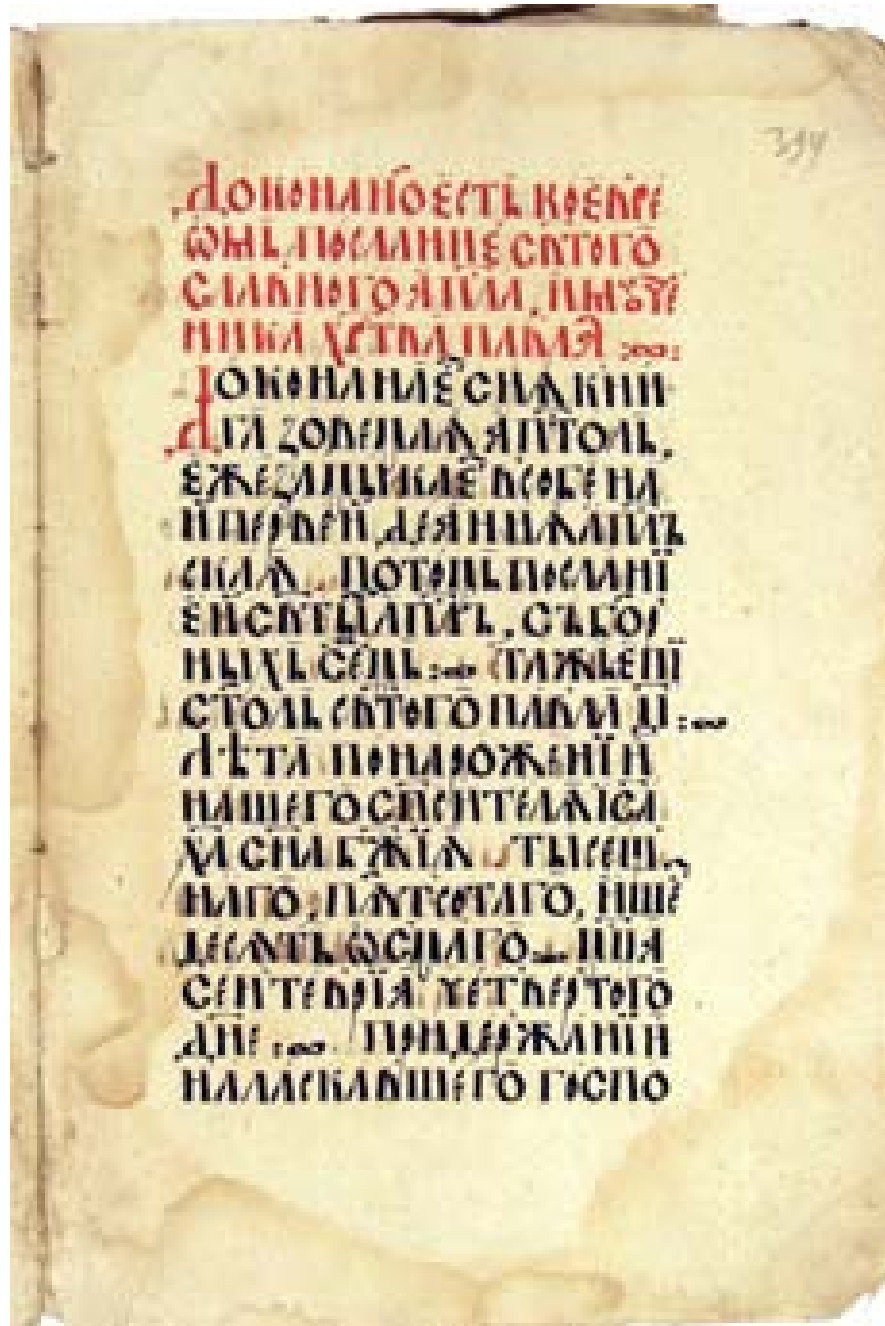 доконано єсть ко євре
ѡмъ посланїе свѧтого
славного ап҃ла, и мꙋче
ника хс҃тва павла :~:
Доконана єс сиѧ кни
га зовемаѧ ап҃толъ,
єже замыкаєт в собе на
и первей деяниѧ ап҃лъ
скаѧ потомъ посланї
єй свѧтых ап҃лъ, събо
ныхъ семъ :~ таж еп҃и
столъ свѧтого павла д҃ї :~
лѣта по нарожєнїи
нашего спсителѧ іс҃а
ха҃ сн҃а бж҃їѧ тысещ
наго, пѧтсотаго, и ше
десѧтъ ѡсмаго мц҃а
сентевріа четвертого
дн҃е :~ при держанїи
наласкавшего госпо